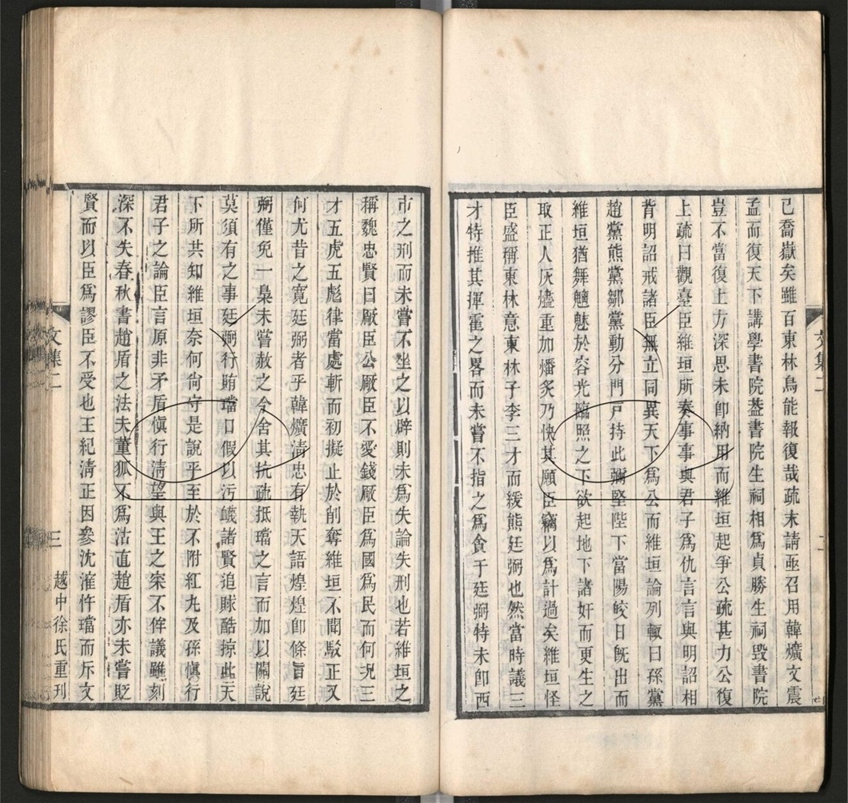 己喬嶽矣雖百東林烏能報復哉疏末請亟召用韓爌文震
孟而復天下講學書院葢書院生祠相為貞勝生祠毀書院
豈不當復上方深思未卽納用而維垣起爭公疏甚力公復
上疏曰觀臺臣維垣所奏事事與君子為仇言言與明詔相
背明詔戒諸臣無立同異天下為公而維垣論列輙曰孫黨
趙黨熊黨鄒黨動分門戸持此彌堅陛下當陽皎日旣出而
維垣猶舞魑魅於容光臨照之下欲起地下諸奸而更生之
取正人灰燼重加燔炙乃快其願臣竊以為計過矣維垣怪
臣盛稱東林意東林子李三才而緩熊廷弼也然當時議三
才特推其揮霍之畧而未嘗不指之為貪于廷弼特未卽西
文集二
市之刑而未嘗不坐之以辟則未為失論失刑也若維垣之
稱魏忠賢曰厰臣公厰臣不愛錢厰臣為國為民而何況三
才五虎五彪律當處斬而初擬止於削奪維垣不聞駁正又
何尤昔之寛廷弼者乎韓爌清忠有執天語煌煌卽條旨廷
弼僅免一梟未嘗赦之今舍其抗疏抵璫之言而加以關說
莫須有之事廷弼行賄璫口假以污衊諸賢追賕酷掠此天
下所共知維垣奈何尙守是說乎至於不附紅丸及孫愼行
君子之論臣言原非矛盾愼行清望與王之寀不倖議雖刻
深不失春秋書趙盾之法夫董狐不為沽直趙盾亦未嘗貶
賢而以臣為謬臣不受也王紀清正因參沈㴶忤璫而斥文
文集二
三
越中徐氏重刋